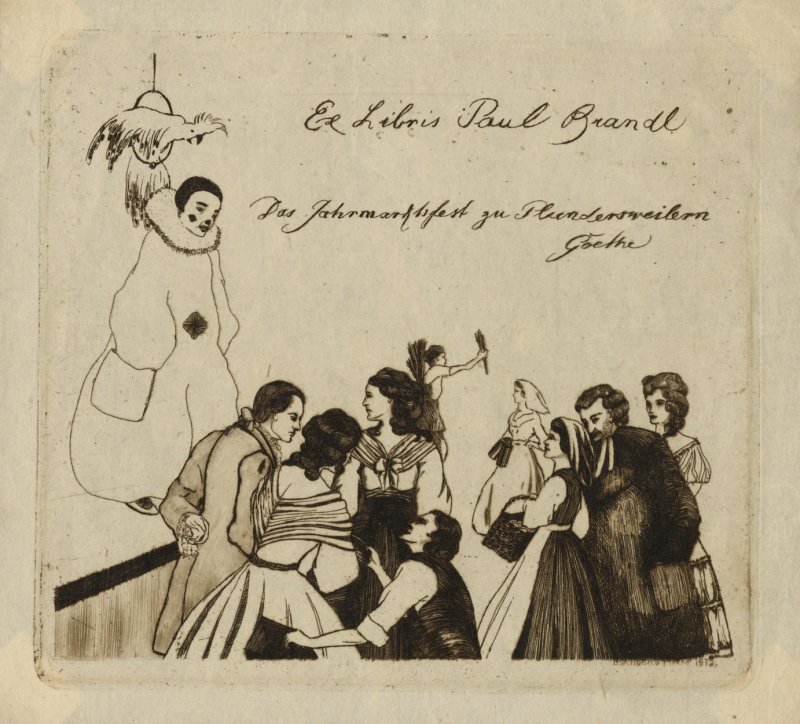 Ex Libris Paul Brandl
Das Jahrmarktsfest zu Plundersweilern
Goethe